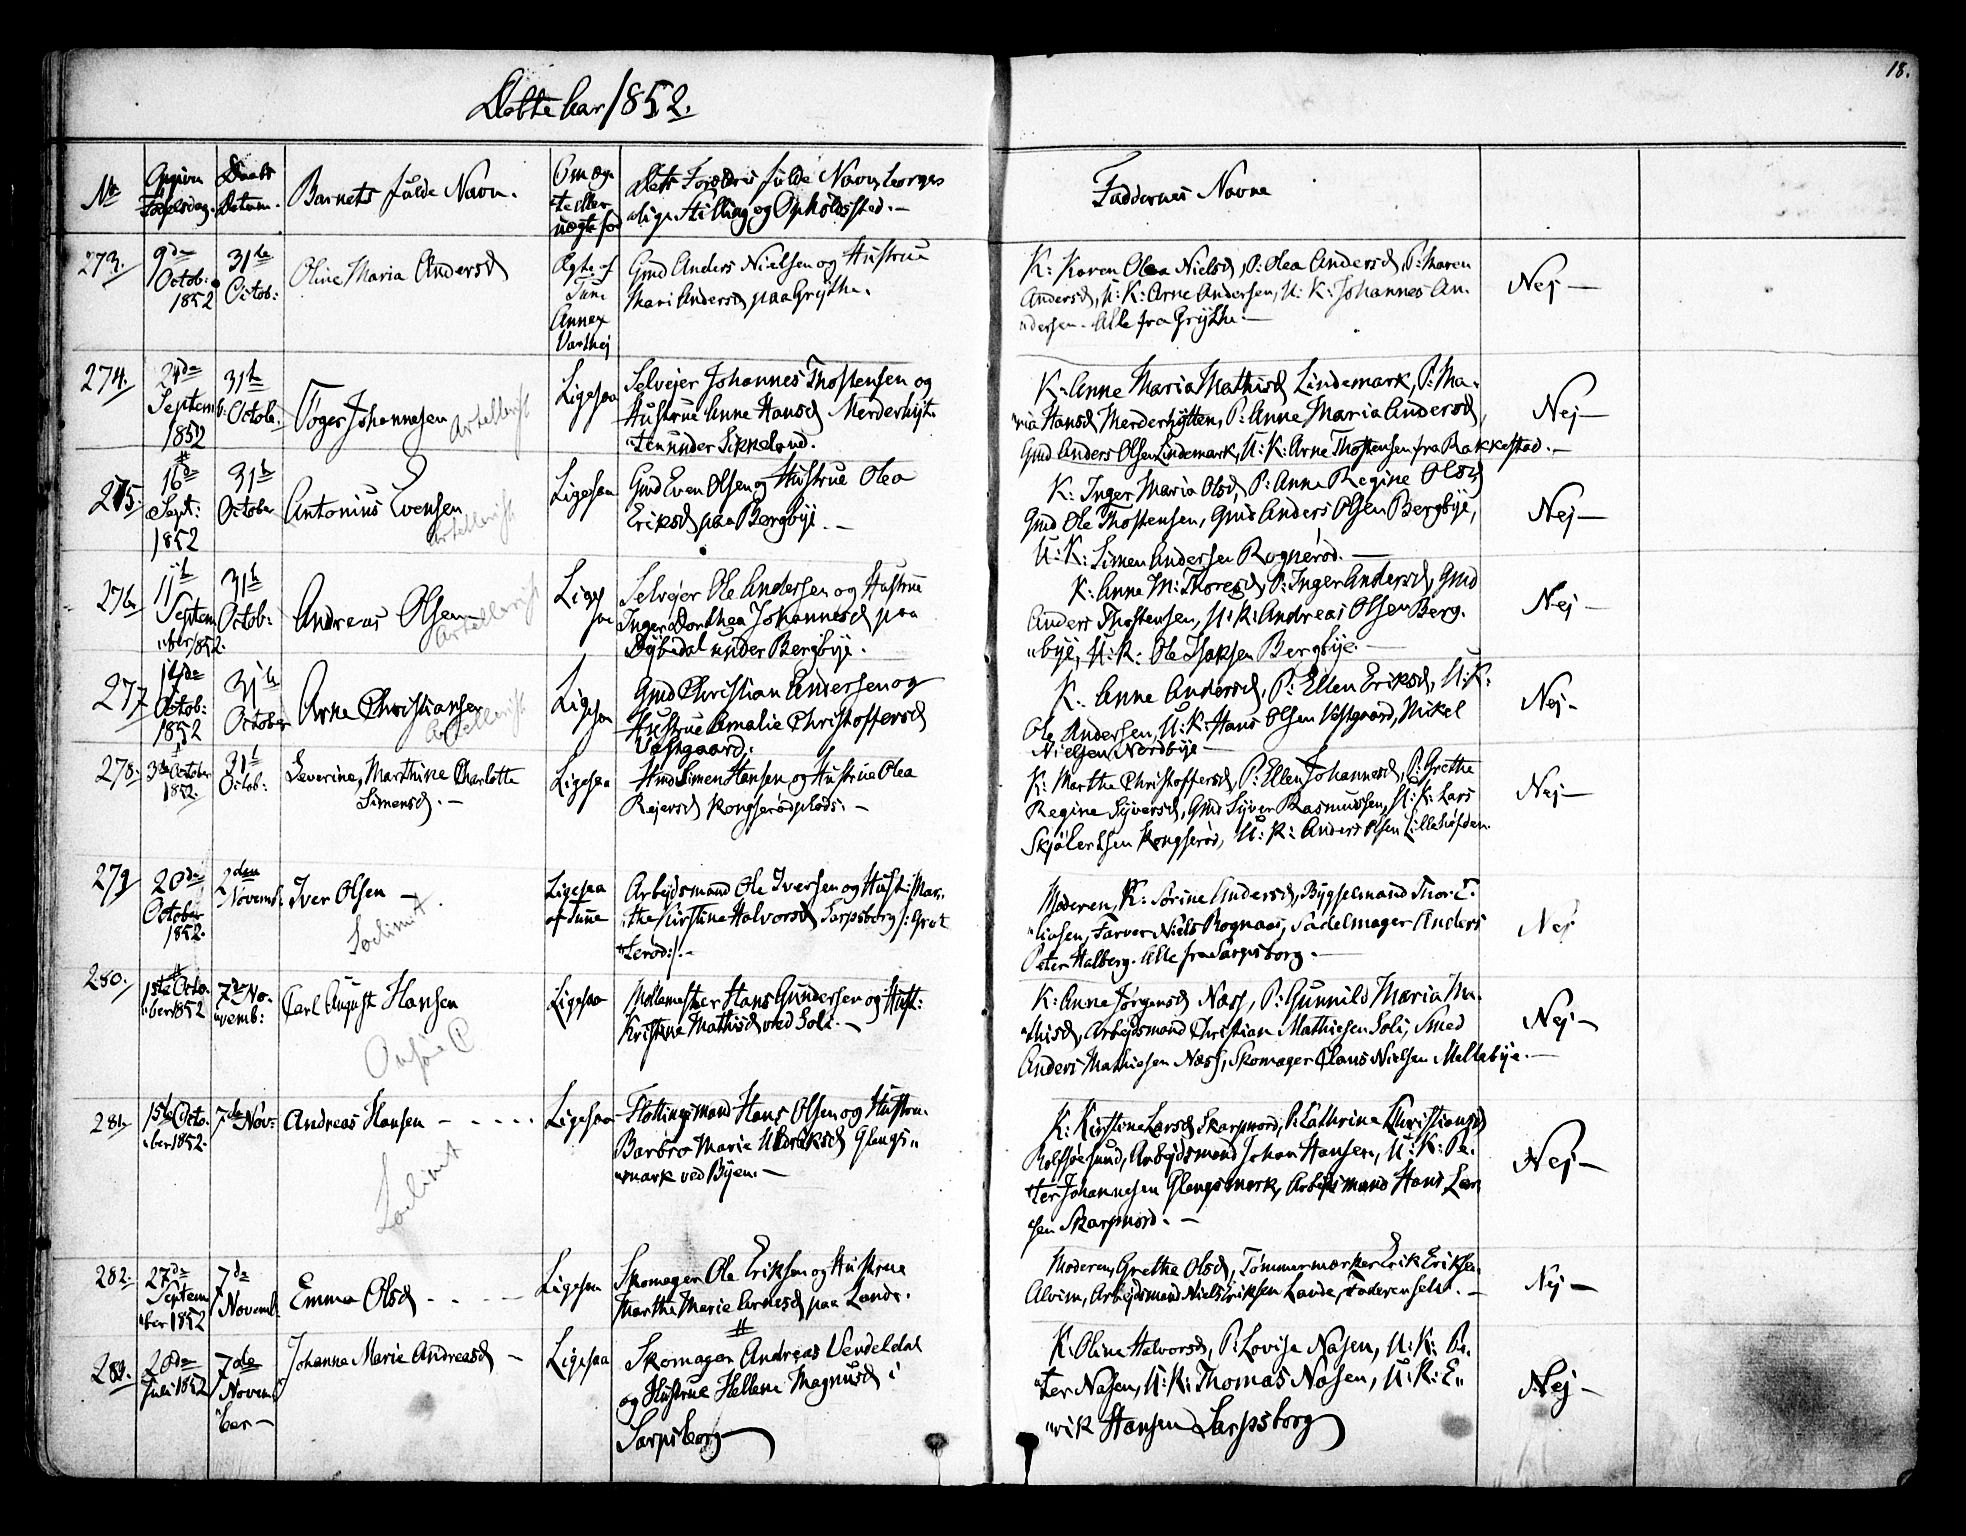 18.
Døbte har 1852.
No
Opgiven Fødselsdag.
Daabs Datum.
Barnets fulde Navn.
Om ægte eller uægte fød
Dets Forældres fulde Navn, borger-
lige Stilling og Opholdssted. —
Faddernes Navne
273.
9de
Octob:
1852
31te
Octob:
Oline Maria Andersd
Ægte af
Tune
Annex
Varthej
Gmd Anders Nielsen og Hustrue
Mari Andersd paa Grythe.
K: Karen Olea Nielsd, P: Olea Andersd, P: Maren
Andersd, U: K: Arne Andersen, U: K: Johannes An-
"dersen. Alle fra Grythe. —
Nej —
274.
24de
Septem
b:
1852
31te
Octob.
Toger Johannesen
Artellerist
Ligesaa
Selvejer Johannes Thostensen og
Hustrue Anne Hansd Merderhyt-
"ten under Sikkeland.
K: Anne Maria Mathisd Lindemark, P: Ma-
"ria Hansd Merderhytten, P: Anne Maria Andersd,
Gmd Anders Olsen Lindemark, U: K: Arne Thostensen fra Rakkestad. —
Nej —
275.
16de
Sept:
1852
31te
October
Antonius Evensen
Artellerist
Ligesaa
Gmd Even Olsen og Hustrue Olea
Eriksd paa Bergbye. —
K: Inger Maria Olsd, P: Anne Regine Olsd
Gmd Ole Thostensen, Gmd Anders Olsen Bergbye,
U: K: Simen Andersen Rognerød. —
Nej —
276.
11te
Septem
"ber 1852.
31te
Octob:
Andreas Olsen
Artellerist
Ligesaa
Selvejer Ole Andersen og Hustrue
Inger Dorthea Johannesd paa
Dybedal under Bergbye.
K: Anne M: Thoresd, P: Inger Andersd, Gmd
Anders Thostensen, U: K: Andreas Olsen Berg-
"bye, U: K: Ole Isaksen Bergbye. —
Nej —
277
14de
Octob:
1852
31te
October
Arne Christiansen
Artellerist
Ligesaa
Gmd Christian Andersen og
Hustrue Amalie Christoffersd
Vestgaard.
K: Anne Andersd, P: Ellen Eriksd, U: K:
Ole Andersen, U: K: Hans Olsen Vestgaard, Mikel
Nielsen Nordbye —
Nej —
278.
3de October
1852.
31te
Octob:
Severine, Marthine Charlotte
Simensd. —
Ligesaa
Hmd Simen Hansen og Hustrue Olea
Rejersd Kongserødplads. —
K: Marthe Christoffersd, P: Ellen Johannesd, P: Grethe
Regine Syversd, Gmd Syver Rasmussen, U: K: Lars
Skjølertsen Kongserød, U: K: Anders Olsen Lillehofden.
Nej —
279
20de
October
1852.
2den
Novemb:
Iver Olsen —
Ligesaa
af Tune
Arbejdsmand Ole Iversen og Hust: Mar-
"the Kirstine Halvorsd Sarpsborg /: Grot-
"terød :/. —
Moderen, K: Sørine Andersd, Bygselmand Thor E-
"liasen, Farver Niels Rognaas, Sadelmager Anders
Peter Halberg. Alle fra Sarpsborg. —
Nej
280.
15te Octo-
"ber 1852
7de No-
"vemb:
Carl August Hansen
Ligesaa
Møllemester Hans Gundersen og Hust:
Kristine Mathisd ved Soli. —
K: Anne Jørgensd Næss, P: Gunnild Maria Ma-
"thisd, Arbejdsmand Christian Mathiesen Soli, Smed
Anders Mathiesen Næss, Skomager Claus Nielsen Mellebye. —
Nej —
281.
15te Octo-
"ber 1852.
7de Nov:
Andreas Hansen — - - - -
Ligesaa
Flottingsmand Hans Olsen og Hustrue
Barbro Marie Ulriksd Glengs"
"mark ved Byen. —
K: Kirstine Larsd Skarpnord, P: Cathrine Christiansd
Rolfsøesund, Arbejdsmand Johan Hansen, U: K: Pe-
"ter Johannesen Glengsmark, Arbejdsmand Hans Lar-
"sen Skarpnord. —
Nej —
282.
27de
Septem
"ber 1852
7de
Novemb
Emma Olsd - - - —
Ligesaa
Skomager Ole Eriksen og Hustrue
Marthe Marie Arnesd paa Lande.
Moderen, Grethe Olsd, Tømmermærker Erik Eriksen
Alvim, Arbejdsmand Niels Eriksen Lande, Faderen selv. —
Nej —
283.
20de
Juli 1852
7de
Novem
"ber —
Johanne Marie Andreasd —
Ligesaa
Skomager Andreas Vendeldal
og Hustrue Hellene Magnusd i
Sarpsborg —
K: Oline Halvorsd, P: Lovise Nasen, U: K: Pe-
"ter Nasen, U: K: Thomas Nasen, U: K: E"
"rik Hansen Sarpsborg
Nej —